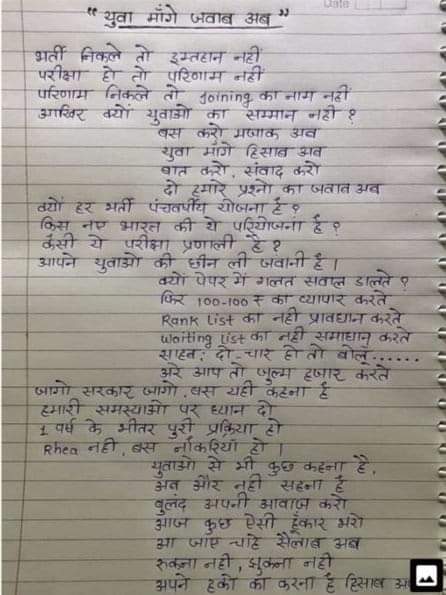 " युवा माँगे जवाब अब "
Date
भर्ती निकले तो इम्तहान नहीं
परीक्षा हो तो परिणाम नहीं
परिणाम निकले तो joining का नाम नहीं
आखिर क्यों युवाओं का सम्मान नहीं ?
बस करो मजाक अब
युवा माँगे हिसाब अब
बात करो, संवाद करो
दो हमारे प्रश्नों का जवाब अब
क्यों हर भर्ती पंचवर्षीय योजना है ?
किस नए भारत की ये परियोजना है ?
कैसी ये परीक्षा प्रणाली है ?
आपने युवाओं की छीन ली जवानी है ।
क्यों पेपर में गलत सवाल डालते ?
फिर 100-100 ₹ का व्यापार करते
Rank List का नहीं प्रावधान करते
Waiting List का नहीं समाधान करते
साहब; दो-चार हो तो बोलूं......
अरे आप तो जुल्म हजार करते
जागो सरकार जागो, बस यही कहना है
हमारी समस्याओं पर ध्यान दो
1 वर्ष के भीतर पुरी प्रक्रिया हो
Rhea नहीं, बस नौकरियाँ हो ।
युवाओं से भी कुछ कहना है,
अब और नहीं सहना है
बुलंद अपनी आवाज करो
आज कुछ ऐसी हुँकार भरो
आ जाए चाहे सैलाब अब
रुकना नहीं, झुकना नहीं
अपने हकों का करना है हिसाब